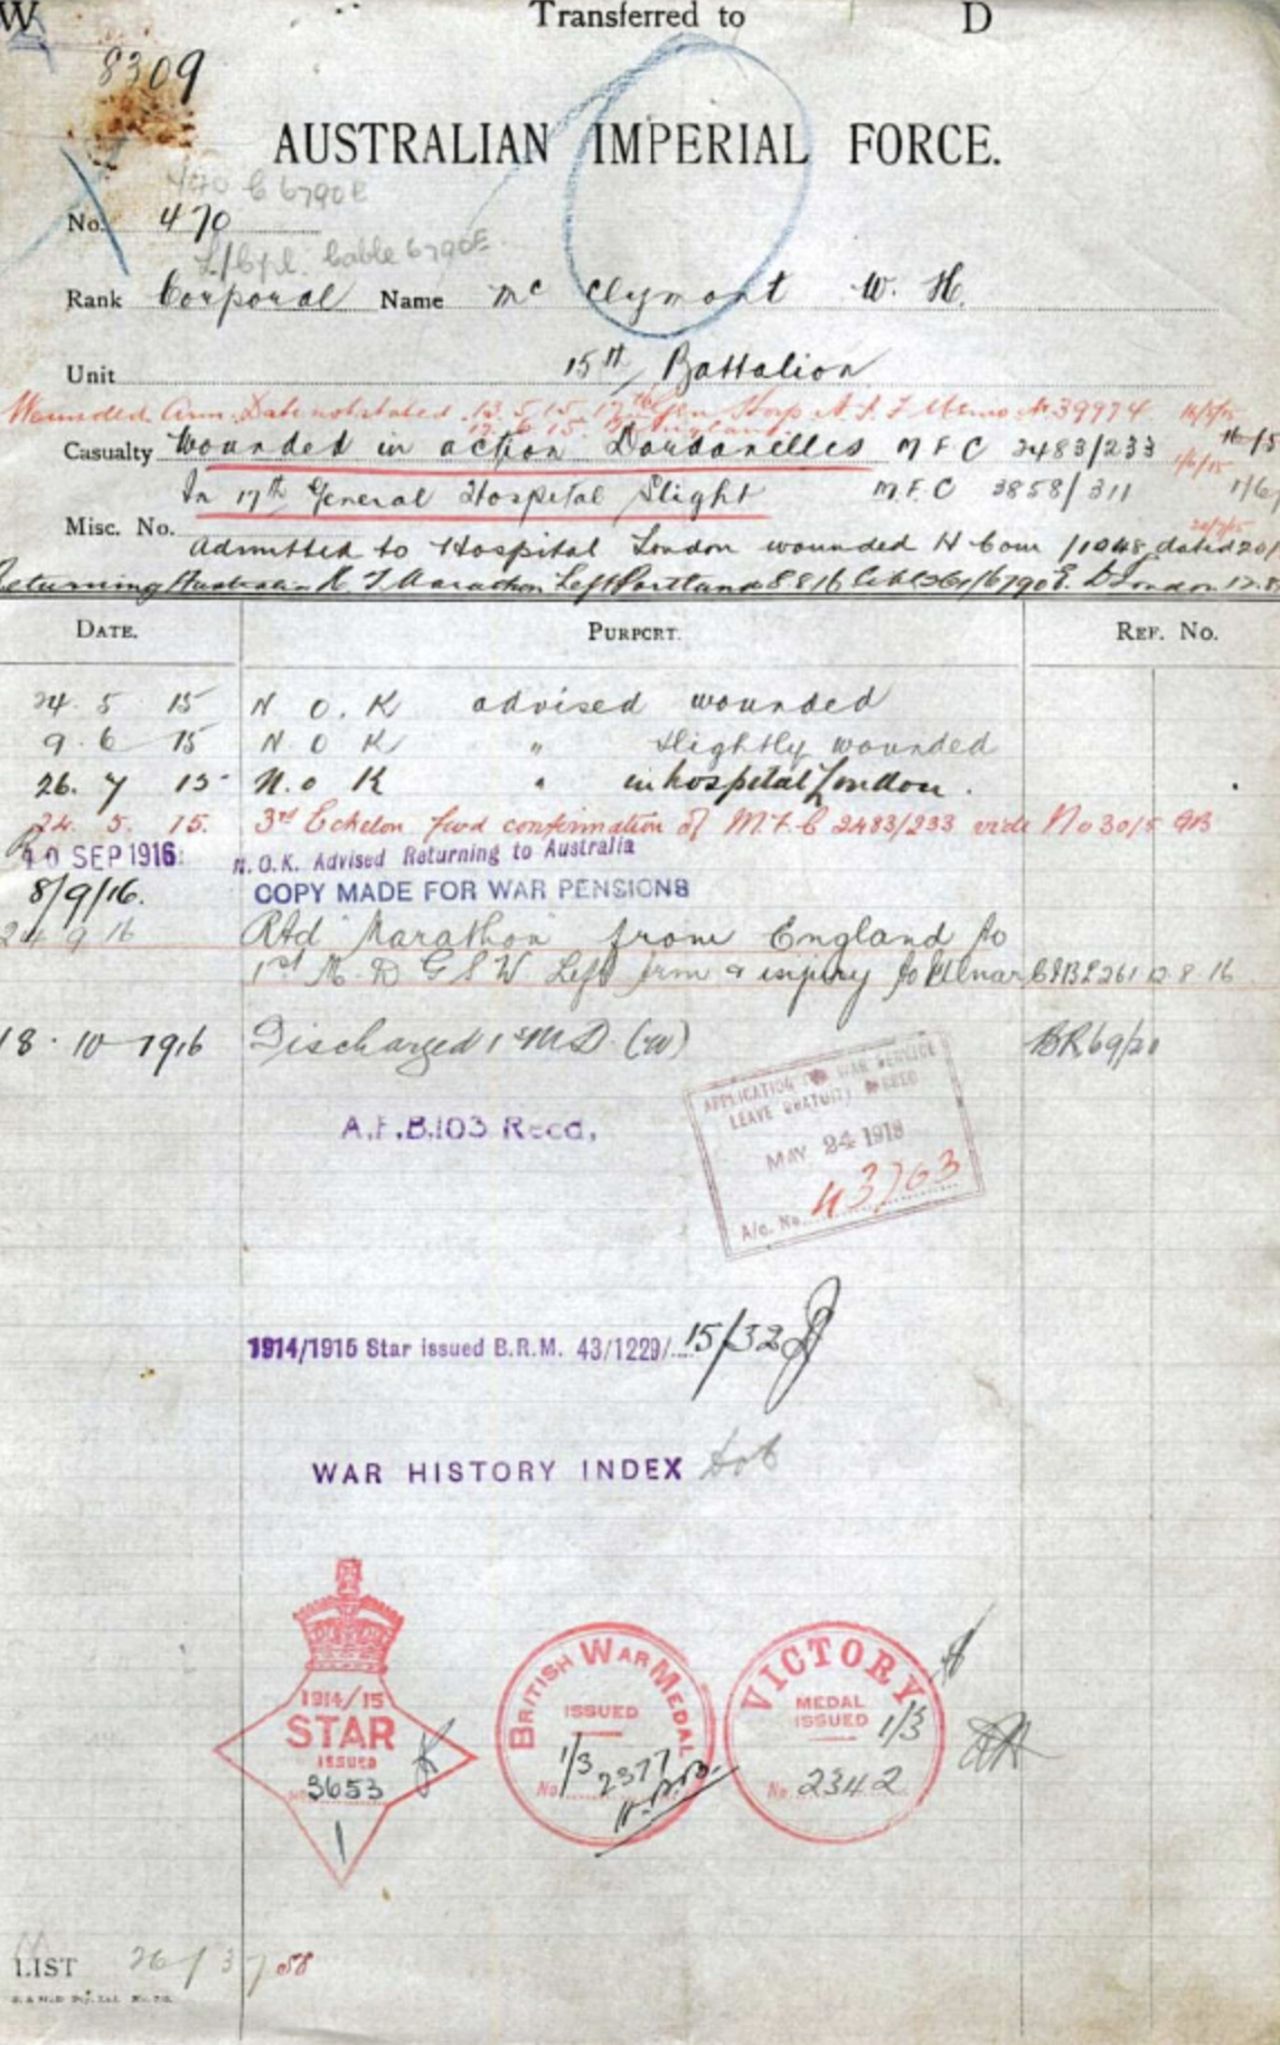 W Transferred to D
8309
AUSTRALIAN IMPERIAL FORCE.
470 C 6790E
No. 470
L/Cpl. Cable 6790E
Rank Corporal Name Mc Clymont W. H.
Unit 15th Battalion
Wounded Arm. Date not stated. 13.5.15. 17th Gen Hosp A.I.F Memo No 39974
Casualty Wounded in action Dardanelles M F C 2483/233
In 17th General Hospital Slight M.F.C 3858/311
Misc. No.
admitted to Hospital London wounded H Com /1048 dated 20/
Returning Australia H.T. Marathon Left Portland 8 8 16 Cable 261/6790E. D London 12.8
DATE. PURPORT. REF. No.
24. 5 15 N O. K advised wounded
9. 6 15 N. O K " slightly wounded
26. 7 15 N. o K " in hospital London.
24. 5. 15. 3rd Echelon fwd confirmation of M.F.C 2483/233 vide No 30/5
10 SEP 1916 N.O.K. Advised Returning to Australia
8/9/16. COPY MADE FOR WAR PENSIONS
24 9 16 Rtd "Marathon" from England to
1st M. D G S W Left Arm & injury to Ulnar CABLE 261 12 8 16
18. 10 1916 Discharged 1st M.D. (w) BR 69/20
A.F.B.103 Recd.
APPLICATION FOR WAR SERVICE
LEAVE GRATUITY
MAY 24 1918
A/c. No. 43703
1914/1915 Star issued B.R.M. 43/1229/....15/32
WAR HISTORY INDEX
1914/15
STAR
ISSUED
No. 3653
1
BRITISH WAR MEDAL
ISSUED
1/3
No. 2377
VICTORY
MEDAL
ISSUED 1/3
No. 2342
LIST 26/3/58